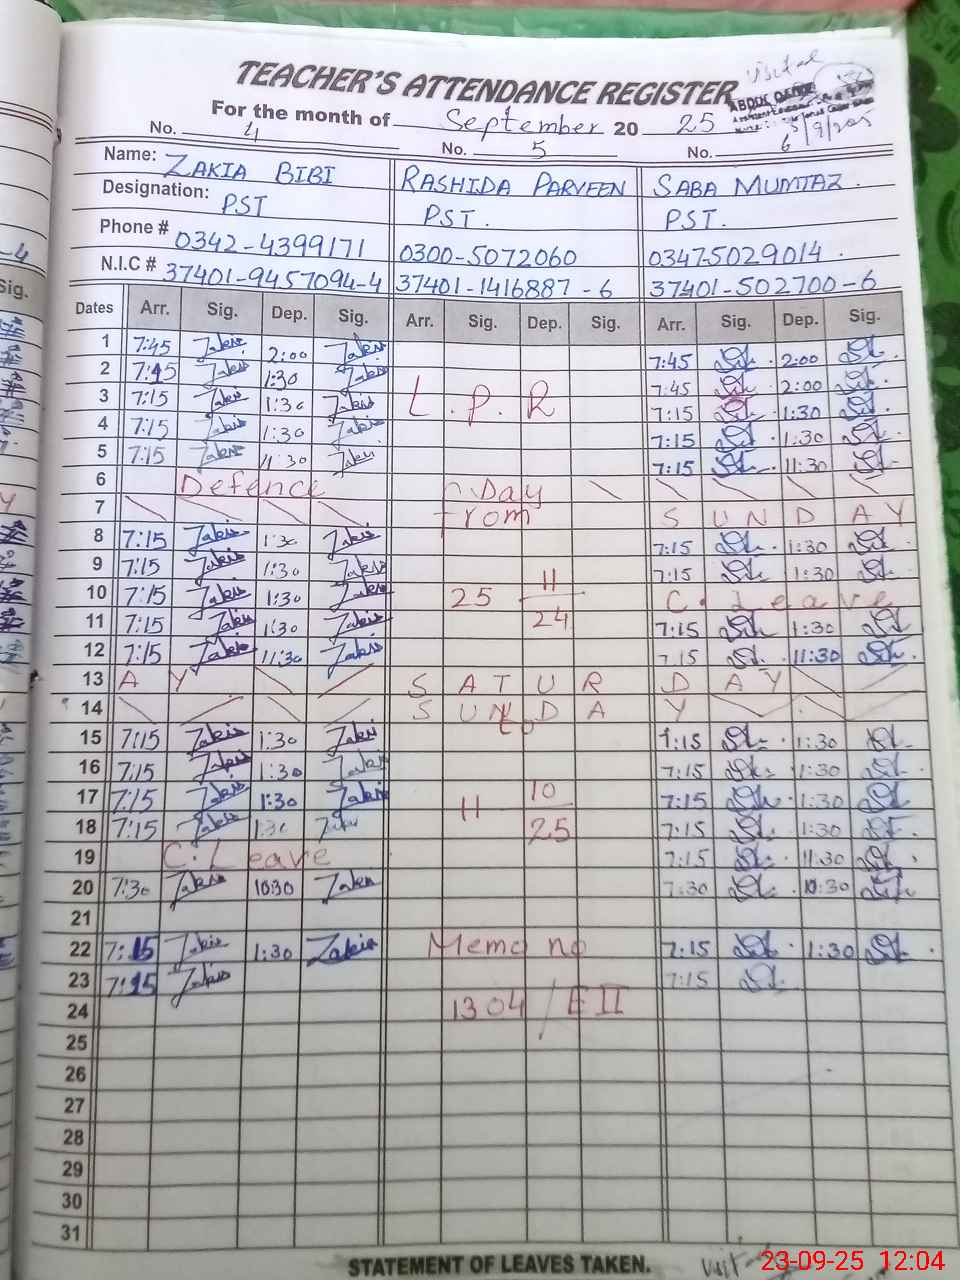 TEACHER'S ATTENDANCE REGISTER
For the month of September 20 25
No. 4 No. 5 No. 6
Name: ZAKIA BIBI RASHIDA PARVEEN SABA MUMTAZ.
Designation: PST PST. PST.
Phone # 0342-4399171 0300-5072060 0347-5029014.
N.I.C # 37401-9457094-4 37401-1416887-6 37401-502700-6
Dates Arr. Sig. Dep. Sig. Arr. Sig. Dep. Sig. Arr. Sig. Dep. Sig.
1 7:45 Zakia 2:00 Zakia 7:45 2:00
2 7:15 Zakia 1:30 Zakia 7:45 2:00
3 7:15 Zakia 1:30 Zakia L.P.R 7:15 1:30
4 7:15 Zakia 1:30 Zakia 7:15 1:30
5 7:15 Zakia 11:30 Zakia 7:15 11:30
6 Defence Day
7 from SUNDAY
8 7:15 Zakia 1:30 Zakia 7:15 1:30
9 7:15 Zakia 1:30 Zakia 7:15 1:30
10 7:15 Zakia 1:30 Zakia 25 11 C. Leave
11 7:15 Zakia 1:30 Zakia 24 7:15 1:30
12 7:15 Zakia 11:30 Zakia 7:15 11:30
13 A Y S A T U R D A Y
14 S U N D A Y
to
15 7:15 Zakia 1:30 Zakia 7:15 1:30
16 7:15 Zakia 1:30 Zakia 7:15 1:30
17 7:15 Zakia 1:30 Zakia 11 10 7:15 1:30
18 7:15 Zakia 1:30 Zakia 25 7:15 1:30
19 C. Leave 7:15 11:30
20 7:30 Zakia 10:30 Zakia 7:30 10:30
21
22 7:15 Zakia 1:30 Zakia Memo no 7:15 1:30
23 7:15 Zakia 7:15
24 1304/EII
25
26
27
28
29
30
31
STATEMENT OF LEAVES TAKEN.
23-09-25 12:04